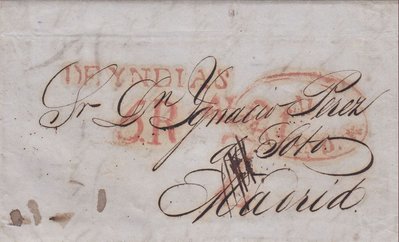 DE YNDIAS
Sr Dn Ygnacio Perez
5R
Soto
Madrid.